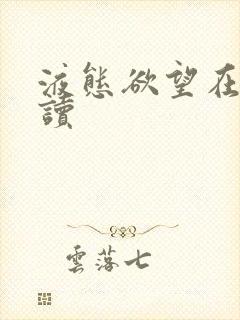 液態欲望在
讀
雲落七